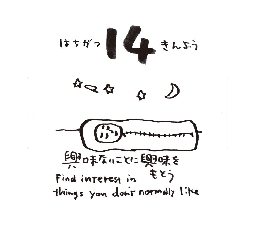 はちがつ 14 きんよう
興味ないことに興味を
もとう
Find interest in
things you don't normally like